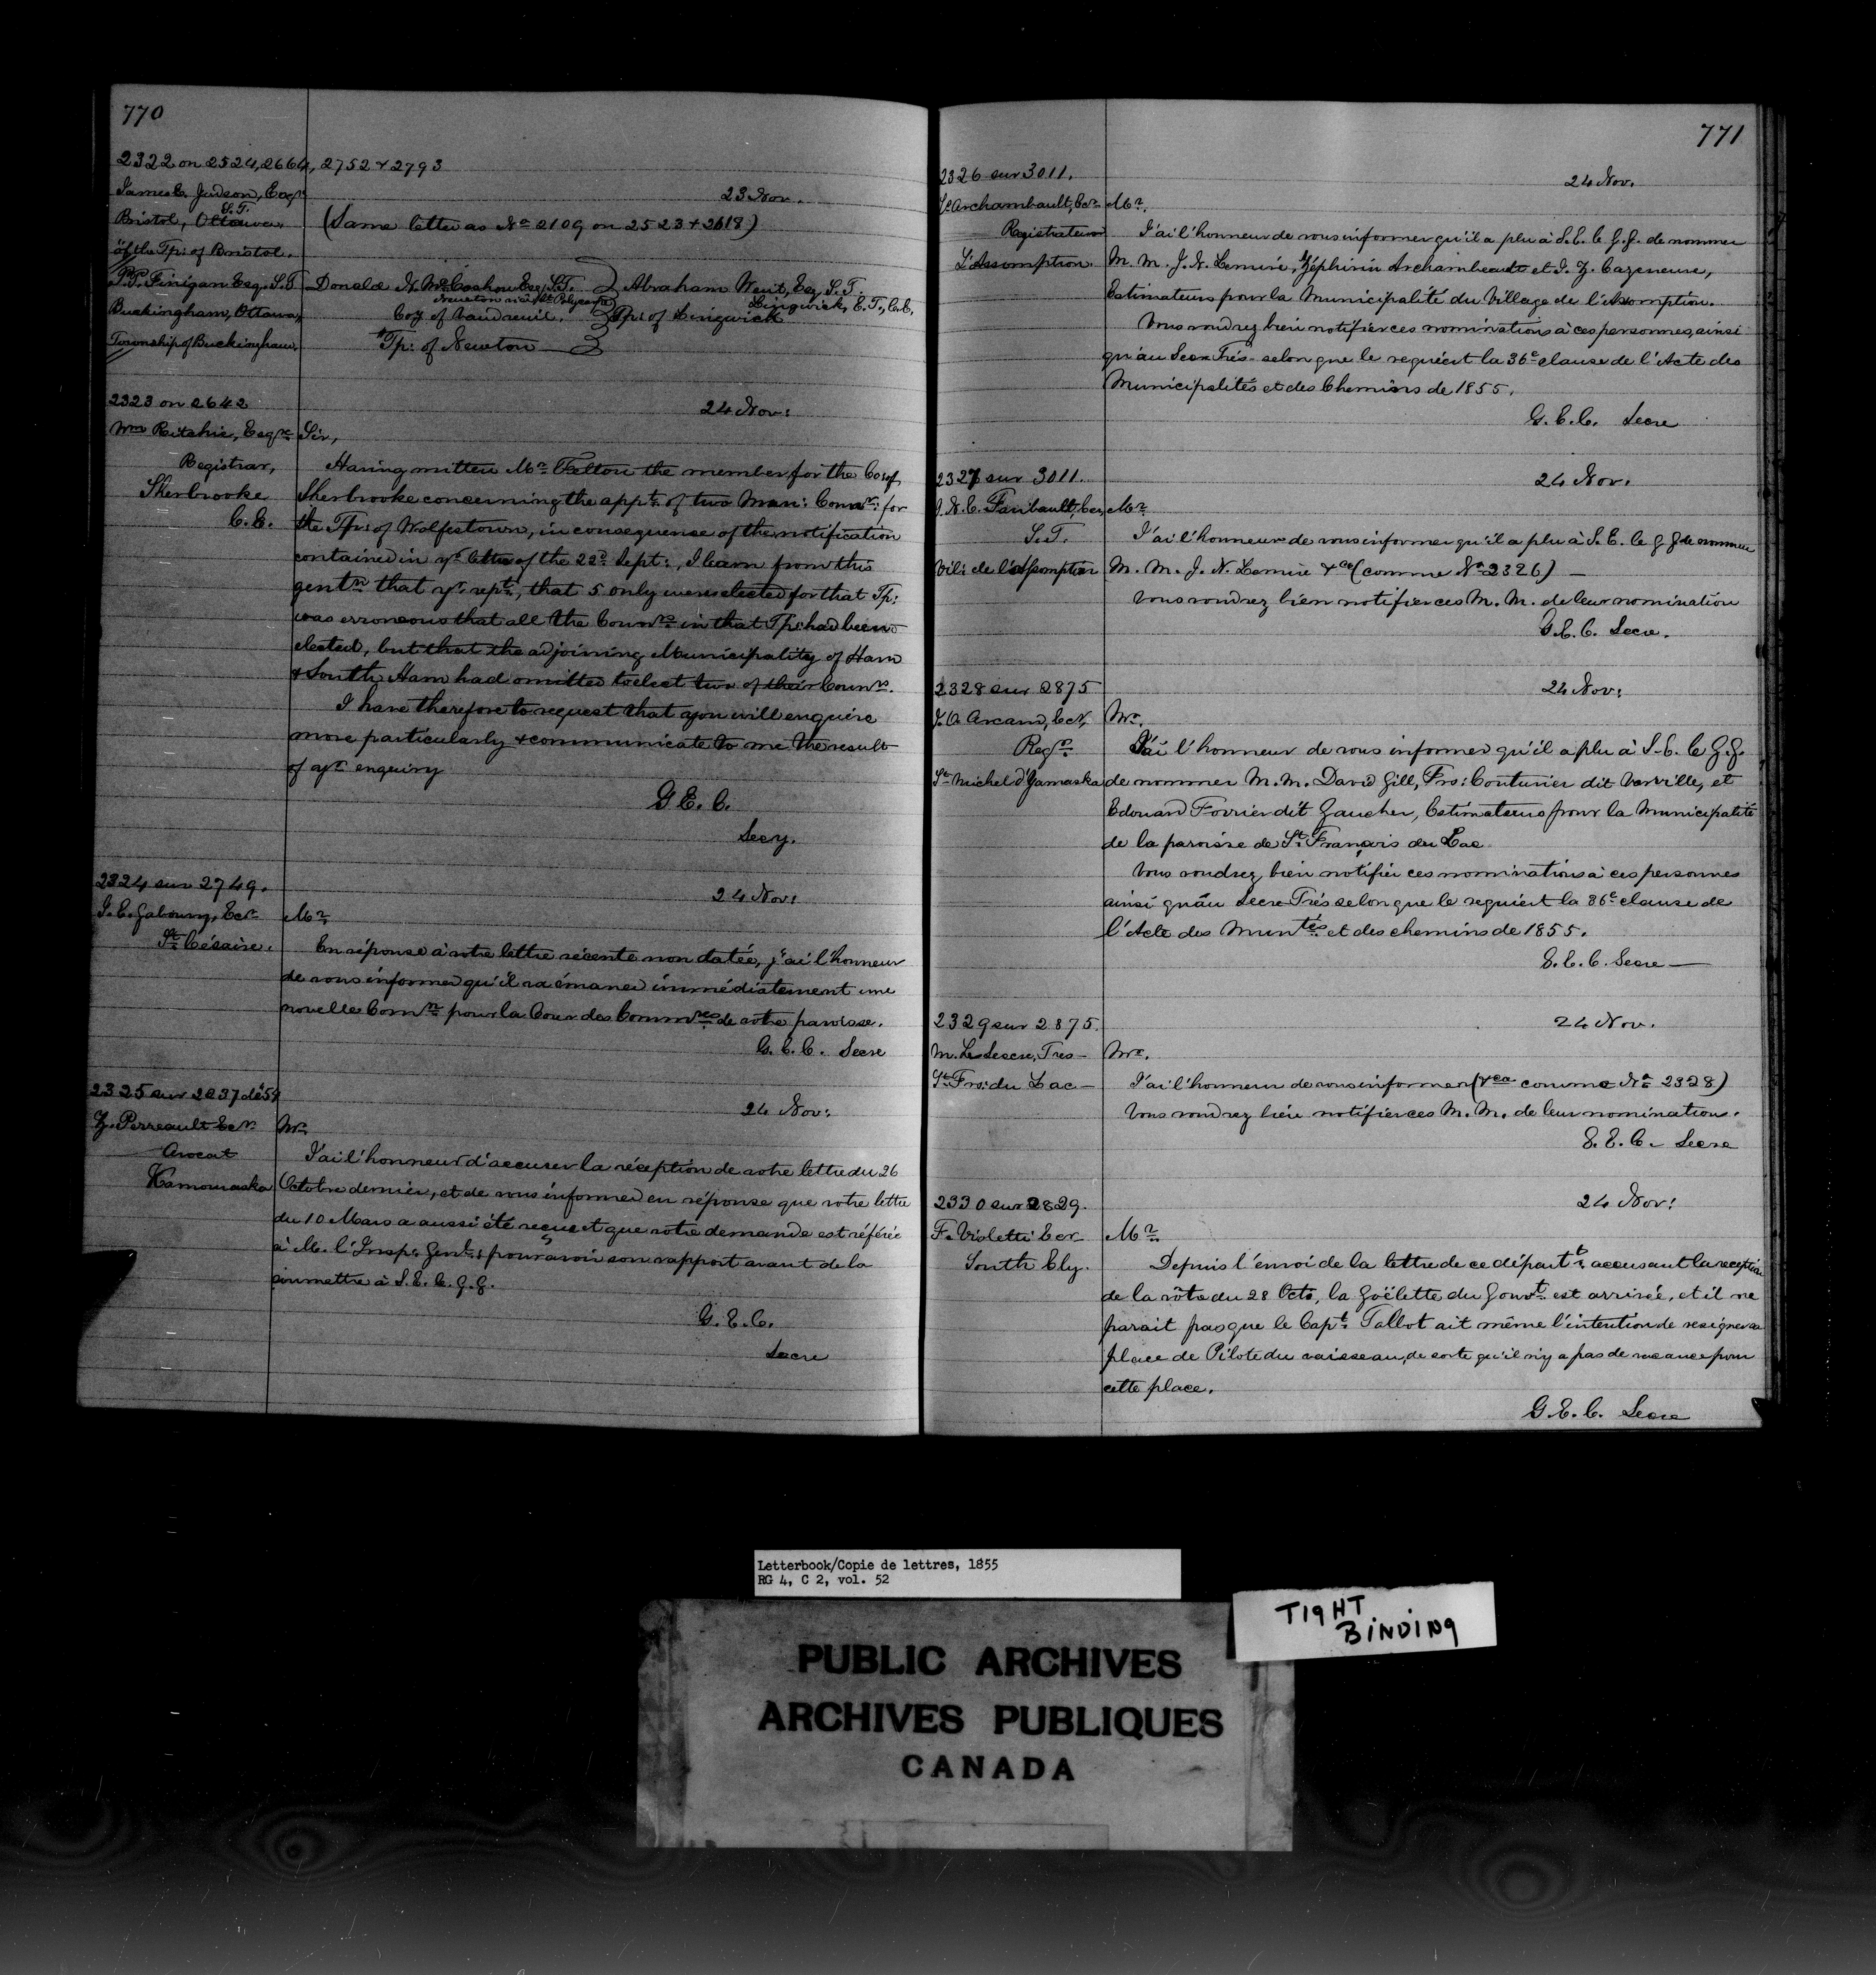 770
2322 on 2524, 2664, 2752 & 2793
James E. Judson, Esqr.
S.T.
23 Nov.
Bristol, Ottawa.
(Same letter as No 2109 on 2523 & 2618)
of the Tp: of Bristol.
P.P. Finigan Esq. S.T
Buckingham, Ottawa,
Township of Buckingham.
Donald Esq, S.T. } Abraham Esq, S.T.
Newton Polycarpe
Lingwick, E.T., C.E.
Coy of Vaudreuil. } Tp: of Lingwick
Tp: of Newton
2323 on 2642
24 Nov:
Wm Ritchie, Esqre
Registrar,
Sherbrooke
C.E.
Sir,
Having written Mr Felton the member for the Co: of
Sherbrooke concerning the appt. of two Mun: Counrs: for
the Tp: of Wolfestown, in consequence of the notification
contained in yr letter of the 22d Sept:, I learn from this
gentn that yr rept., that 5 only were elected for that Tp:
was erroneous that all the Counrs in that Tp: had been
elected, but that the adjoining Municipality of Ham
& South Ham had omitted to elect two of their Counrs.
I have therefore to request that you will enquire
more particularly & communicate to me the result
of yr enquiry
G E. C.
Secy.
2324 sur 2749.
24 Nov:
J. E. Gaboury, Ecr
St Césaire.
Mr
En réponse à votre lettre récente non datée, j'ai l'honneur
de vous informer qu'il va émaner immédiatement une
novelle Comn pour la Cour des Commres de votre paroisse.
G. E. C. Secre
2325 sur 2037 de 54
24 Nov:
Z. Perreault Ecr
Avocat
Kamouraska
Mr
J'ai l'honneur d'accuser la réception de votre lettre du 26
Octobre dernier, et de vous informer en réponse que votre lettre
du 10 Mars a aussi été reçue et que votre demande est référée
à M. l'Insp: Genl: pour avoir son rapport avant de la
soumettre à S.E. L. G.G.
G. E. C.
Secre
771
2326 sur 3011.
24 Nov.
Archambault, Ecr
Registrateur
L'Assomption
Mr.
J'ai l'honneur de vous informer qu'il a plu à S.E. le G.G. de nommer
M. M. J. N. Lemire, Zéphirin Archambeault et J. Z. Cazeneuve,
Estimateurs pour la Municipalité du Village de l'Assomption.
Vous voudrez bien notifier ces nominations à ces personnes, ainsi
qu'au Secre Trés selon que le requiert la 36e clause de l'Acte des
Municipalités et des Chemins de 1855.
G. E. C. Secre
2327 sur 3011.
24 Nov.
J. N. E. Faribault, Ecr,
S.T.
Vil: de l'Assomption
Mr
J'ai l'honneur de vous informer qu'il a plu à S. E. le G G de nommer
M. M. J. N. Lemire &ca (comme No 2326) —
Vous voudrez bien notifier ces M. M. de leur nomination
G E. C. Secre.
2328 sur 2875
24 Nov:
J. O. Arcand, Ecr,
Regr.
St Michel d'Yamaska
Mr.
J'ai l'honneur de vous informer qu'il a plu à S. E. le G.G.
de nommer M. M. David Gill, Frs: Couturier dit Verville, et
Edouard Forrier dit Gaucher, Estimateurs pour la Municipalité
de la paroisse de St François du Lac
Vous voudrez bien notifier ces nominations à ces personnes
ainsi qu'au Secre Trés selon que le requiert la 36e clause de
l'Acte des Muntés et des chemins de 1855.
G. E. C. Secre —
2329 sur 2875.
24 Nov.
M. Le Secre, Tres —
St Frs: du Lac —
Mr.
J'ai l'honneur de vous informer (&ca comme No 2328)
Vous voudrez bien notifier ces M. M. de leur nomination.
G. E. C. Secre
2330 sur 2829.
24 Nov:
F. Violetti Ecr
South Ely.
Mr
Depuis l'envoi de la lettre de ce départt. accusant la reception
de la vôtre du 28 Octo, la Goëlette du Gouvt. est arrivée, et il ne
parait pas que le Capt. Talbot ait même l'intention de resigner sa
place de Pilote du vaisseau, de sorte qu'il n'y a pas de vacance pour
cette place.
G. E. C. Secre
Letterbook/Copie de lettres, 1855
RG 4, C 2, vol. 52
TIGHT
BINDING
PUBLIC ARCHIVES
ARCHIVES PUBLIQUES
CANADA